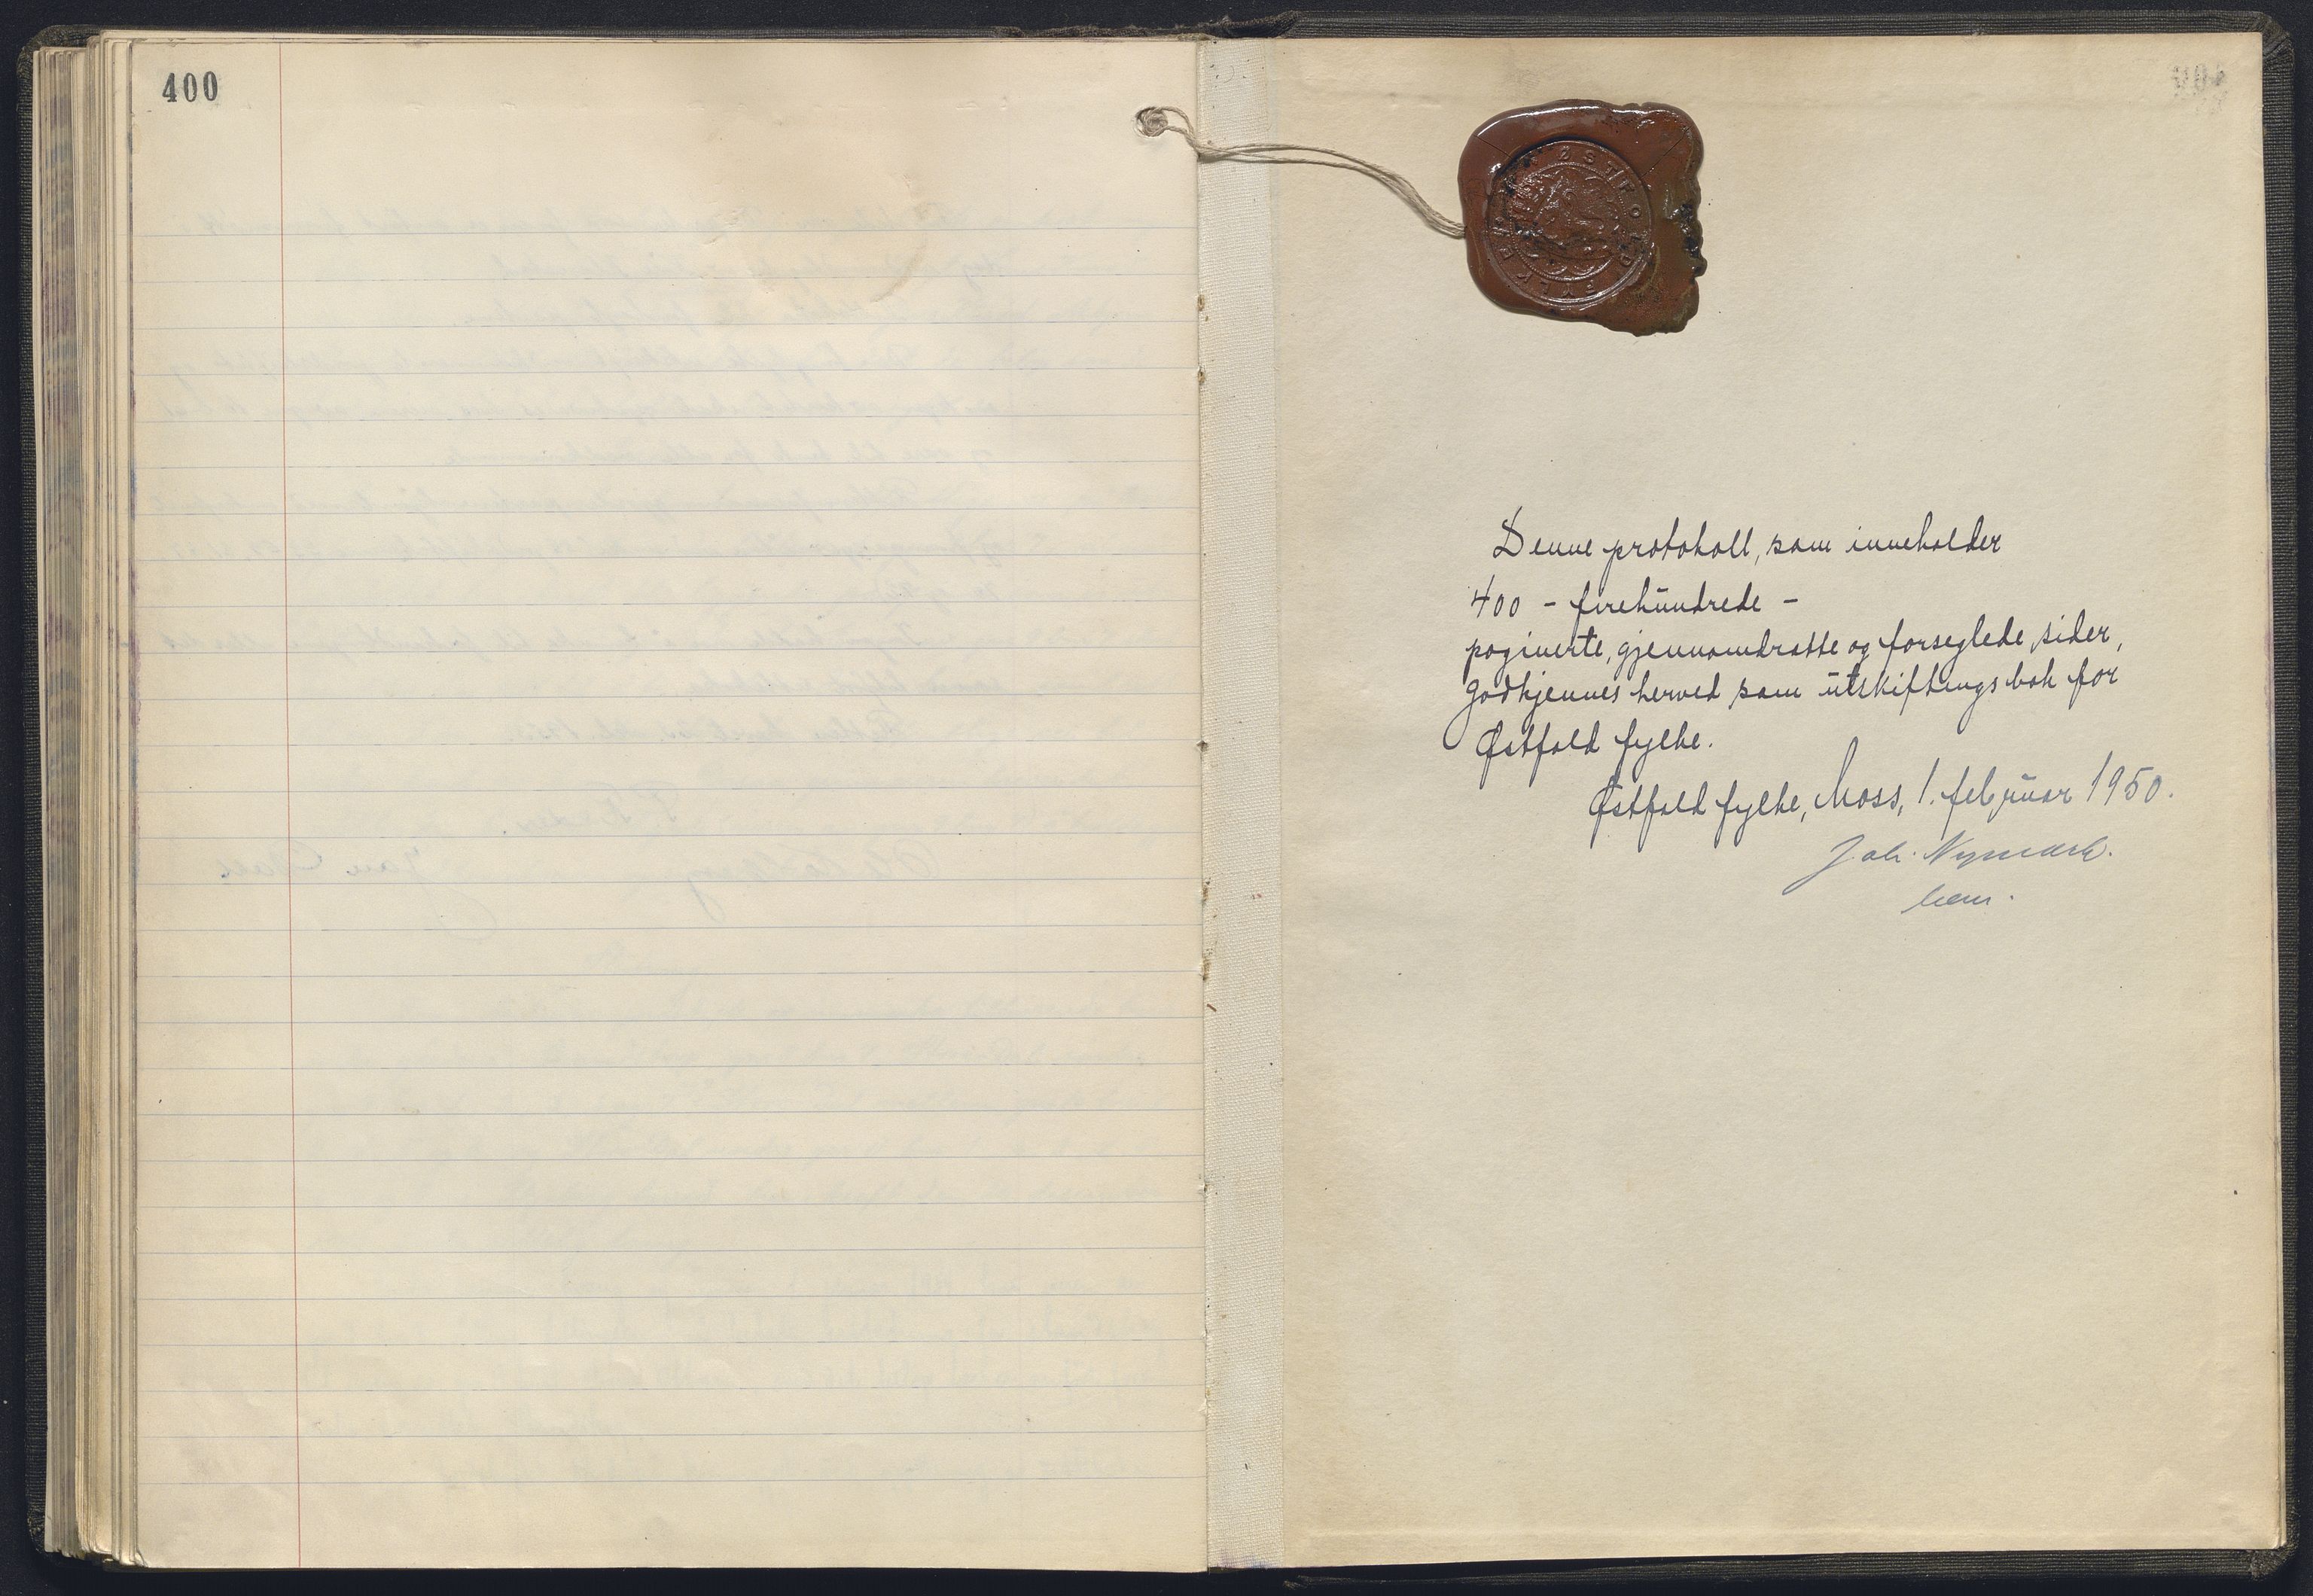 400
ØSTFOLD FYLKE
Denne protokoll, som inneholder
400 - firehundrede -
paginerte, gjennomdratte og forseglede sider,
godkjennes herved som utskiftingsbok for
Østfold fylke.
Østfold fylke, Moss, 1. februar 1950.
Joh. Nymark.